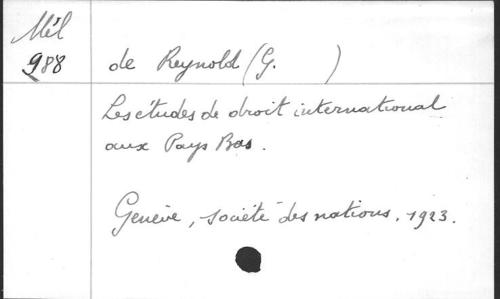 Mél
988
de Reynold (G. )
Les études de droit international
aux Pays Bas.
Genève, société des nations, 1923.